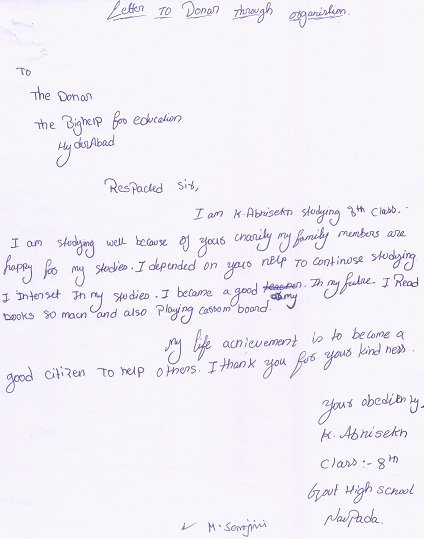 Letter To Donar through organistion.
To
The Donar
The Bighelp foo education
HyderAbad
Respacted sir,
I am K. Abhisekh studying 8th class..
I am studying well because of your charily my family members are
happy foo my studies. I depended on your help To continuse studying
I Intenset In my studies. I became a good army. In my futne. I Read
books so mach and also Playing carrom board.
my life achievement is to become a
good citizen To help others. I thank you for your kindness.
your obediently.
K. Abhisekh
Class :- 8th
Govt High school
NauPada.
M. Sarojini